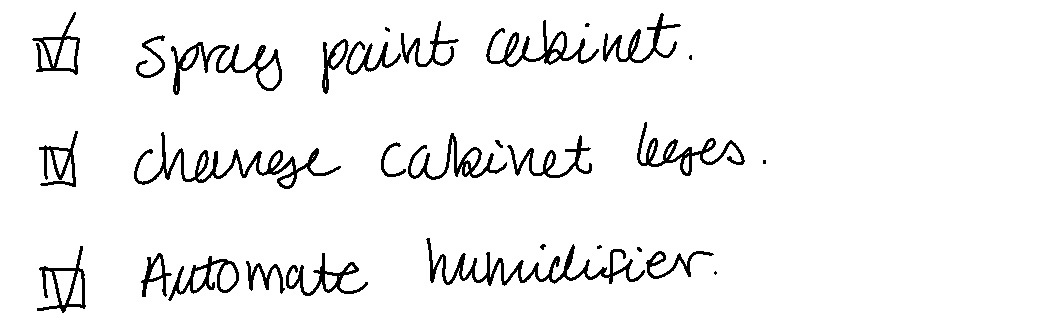 ☑ Spray paint cabinet.
☑ change cabinet leges.
☑ Automate humidifier.